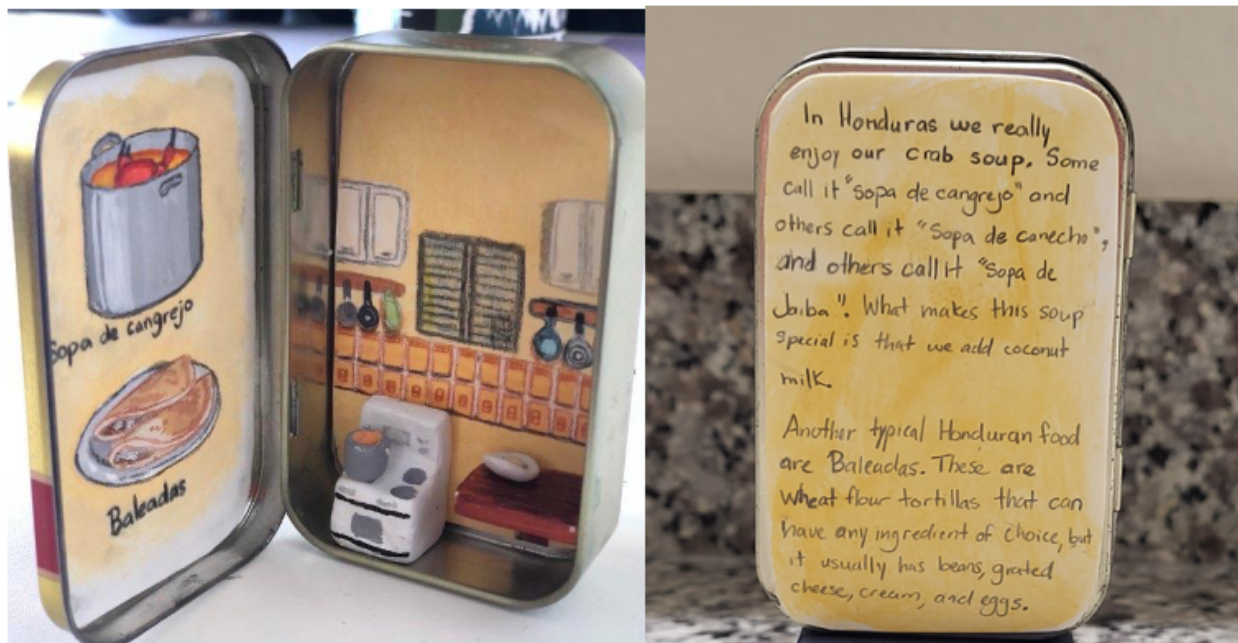 Sopa de cangrejo
Baleadas
In Honduras we really
enjoy our crab soup. Some
call it "Sopa de cangrejo" and
others call it "Sopa de canecho",
and others call it "Sopa de
Jaiba". What makes this soup
special is that we add coconut
milk.
Another typical Honduran food
are Baleadas. These are
wheat flour tortillas that can
have any ingredient of choice, but
it usually has beans, grated
cheese, cream, and eggs.